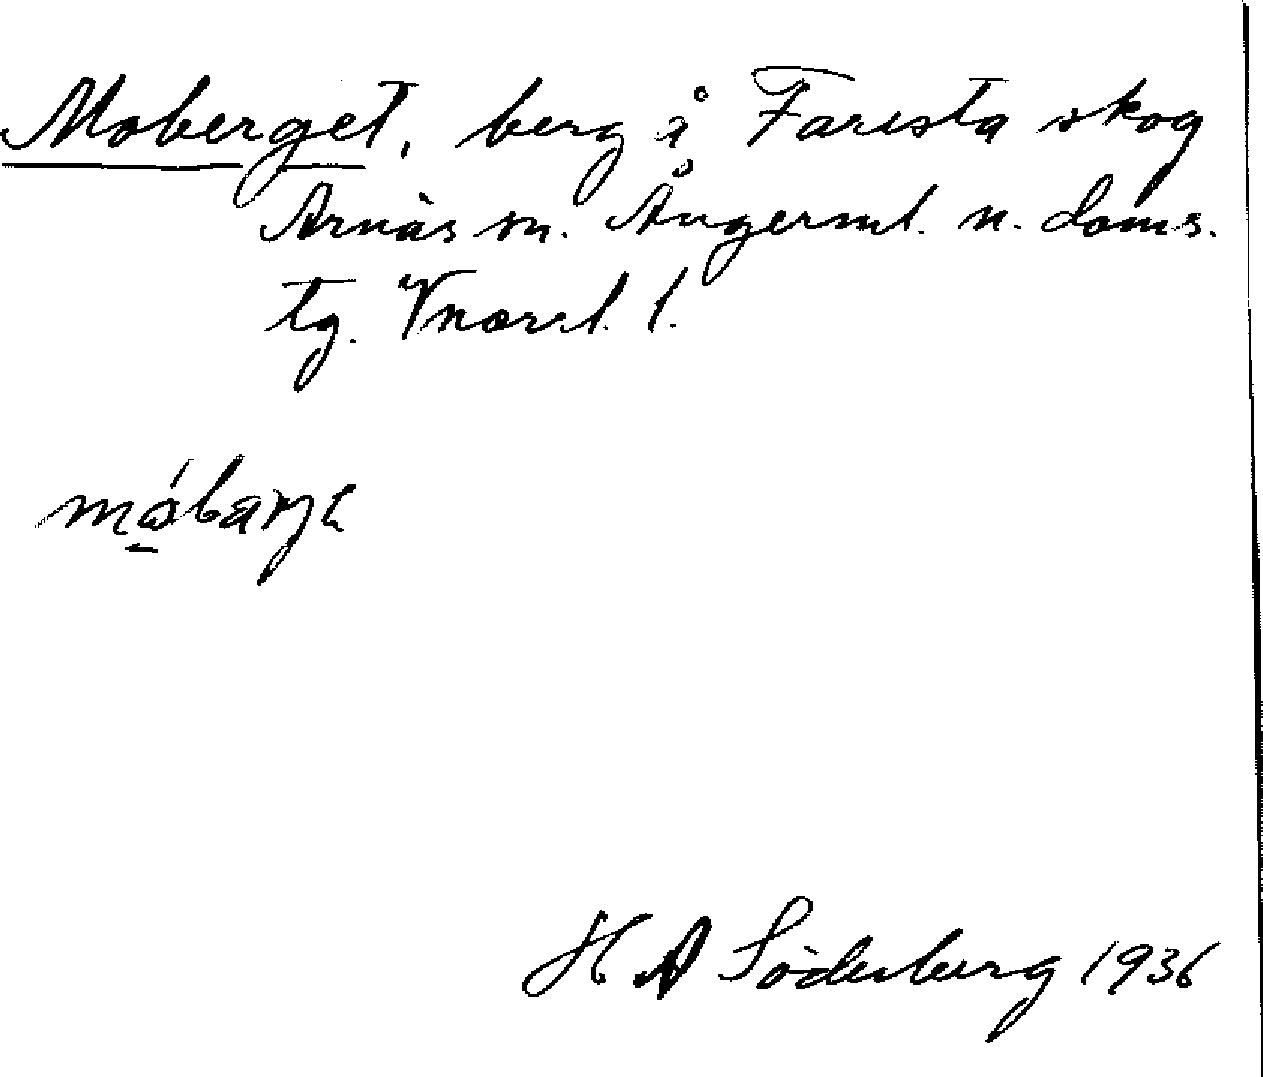 Moberget, berg å Faresta skog
Arnäs sn. Ångerml. n. doms.
tg. Vnorrl. l.
H A Söderberg 1936